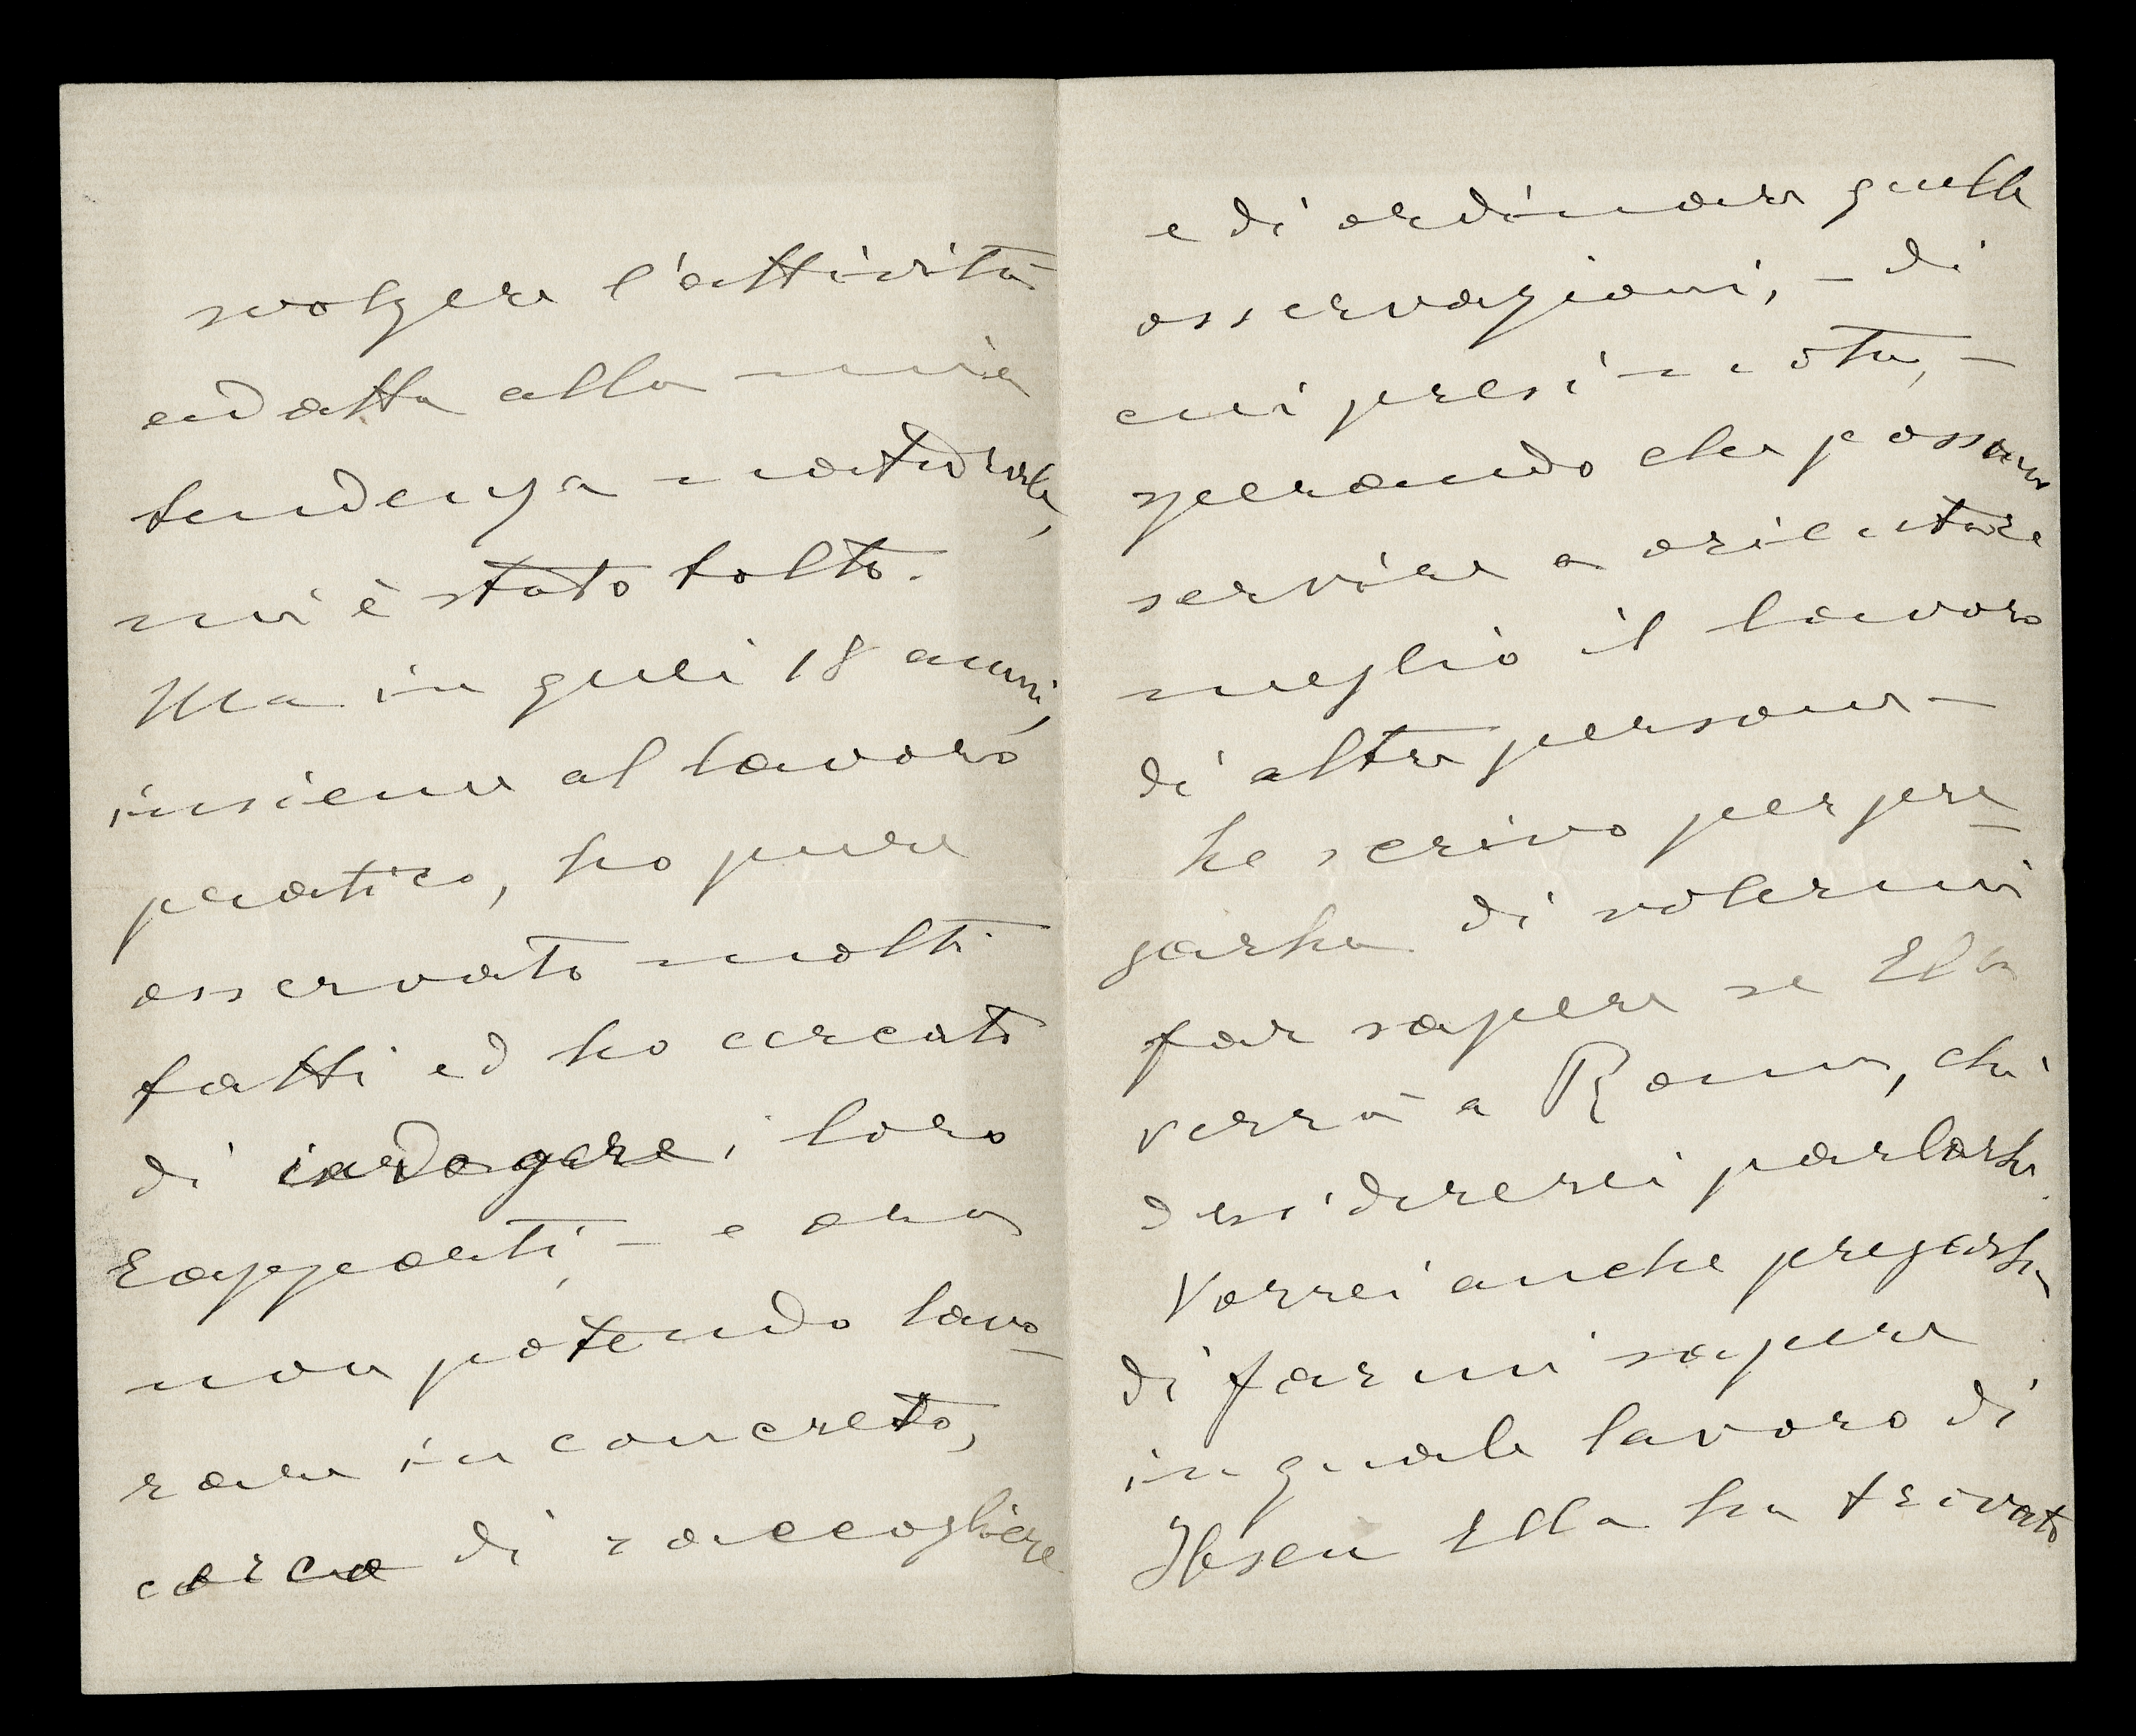 svolgere l'attività
adatta alla mia
tendenza naturale,
mi è stato tolto.
Ma in quei 18 anni,
insieme al lavoro
pratico, ho pure
osservato molti
fatti ed ho cercato
di indagare i loro
rapporti, – e ora
non potendo lavo-
rare in concreto,
cerco di raccogliere
e di ordinare quelle
osservazioni, – di
cui presi nota, –
sperando che possano
servire a orientare
meglio il lavoro
di altre persone –
Le scrivo per pre-
garla di volermi
far sapere se Ella
verrà a Roma, chè
desidererei parlarle.
Vorrei anche pregarla
di farmi sapere
in quale lavoro di
Ibsen Ella ha trovato